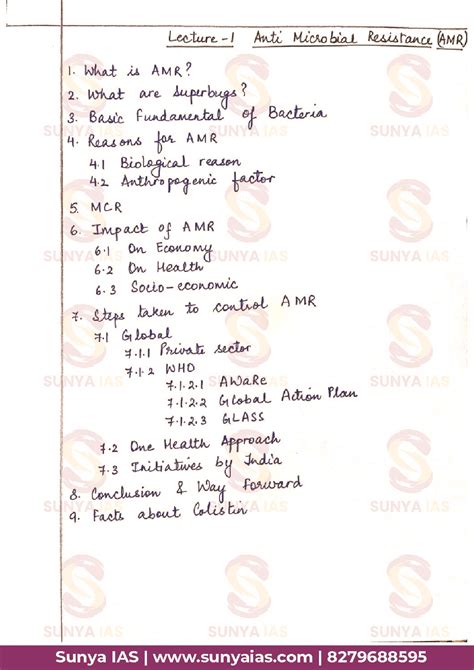 Lecture-1 Anti Microbial Resistance (AMR)
1. What is AMR?
2. What are superbugs?
3. Basic Fundamental of Bacteria
4. Reasons for AMR
4.1 Biological reason
4.2 Anthropogenic factor
5. MCR
6. Impact of AMR
6.1 On Economy
6.2 On Health
6.3 Socio-economic
7. Steps taken to control AMR
7.1 Global
7.1.1 Private sector
7.1.2 WHO
7.1.2.1 AWaRe
7.1.2.2 Global Action Plan
7.1.2.3 GLASS
7.2 One Health Approach
7.3 Initiatives by India
8. Conclusion & Way Forward
9. Facts about Colistin
SUNYA IAS
Sunya IAS | www.sunyaias.com | 8279688595